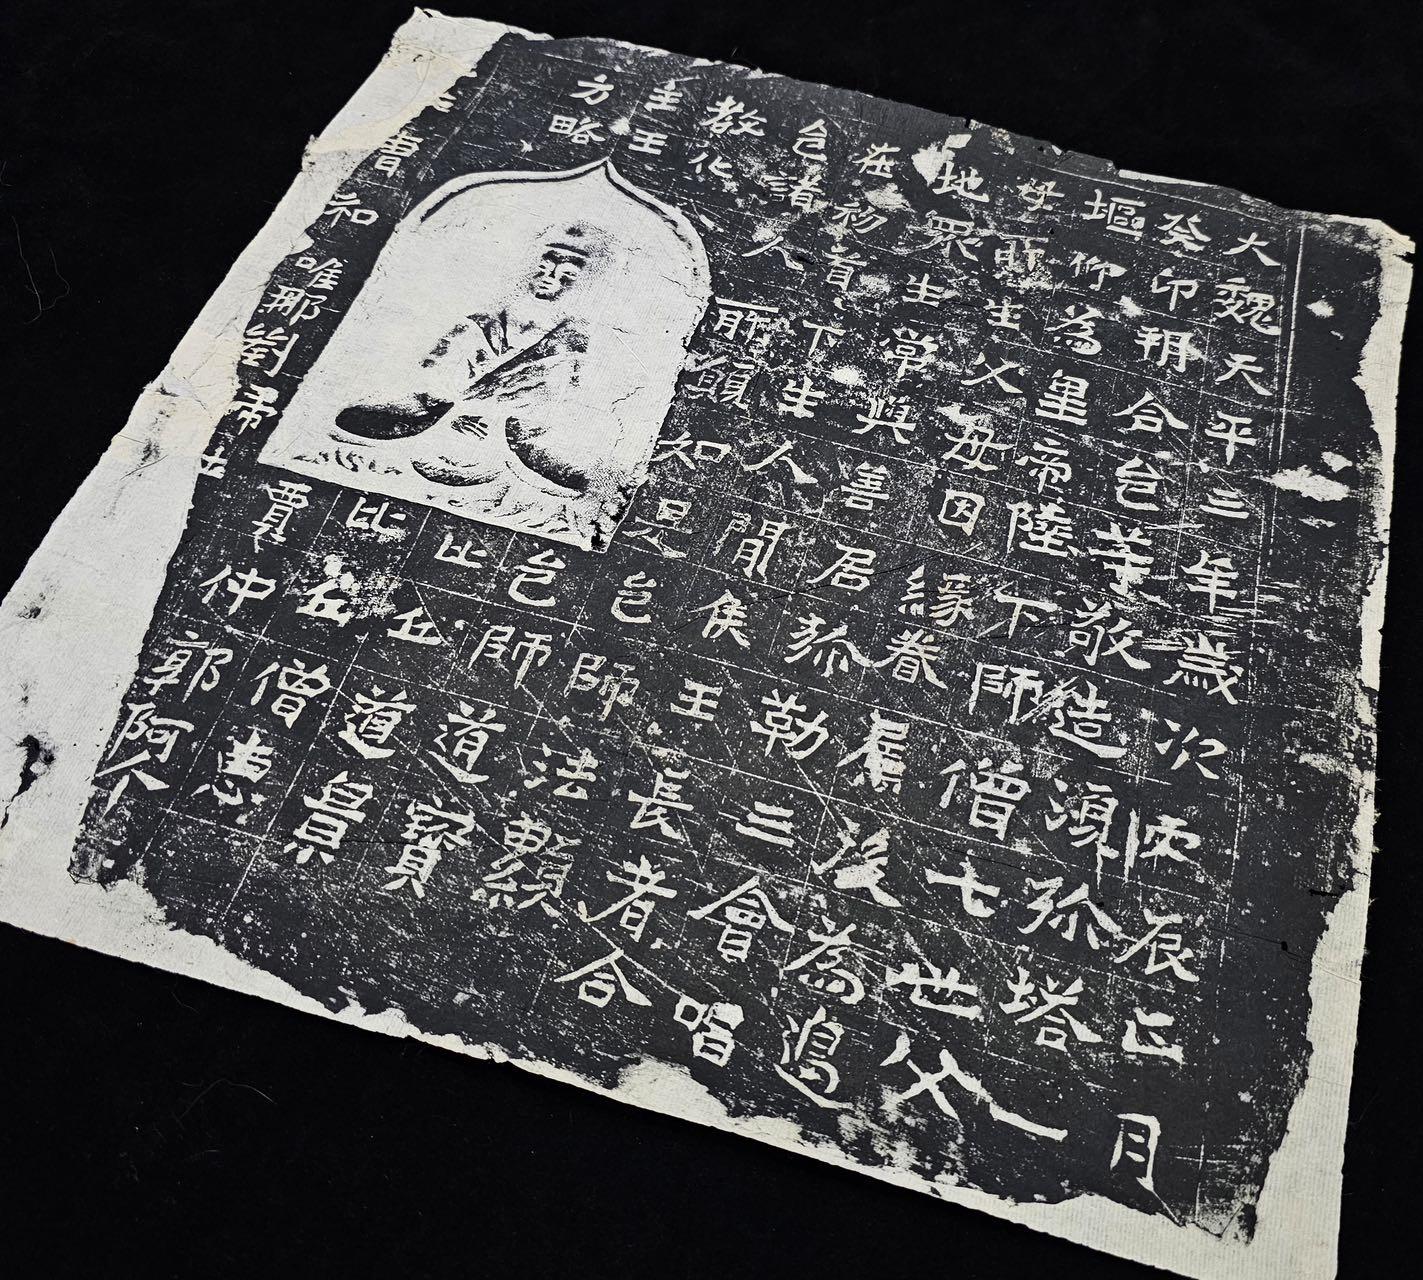 大魏天平三年歲次丙辰正月
癸卯朔合邑等敬造須弥塔一
塸仰為皇帝陛下師僧七世父
母所生父母因緣眷屬後為邊
地眾生常與善居弥勒三會唱
在初首下生人間侯王長者合
邑諸人所願如是邑師法顯
教化
邑師道寶
主王
比丘道景
方略
比丘僧惠
賈仲
郭阿个
賈和
唯那劉帝